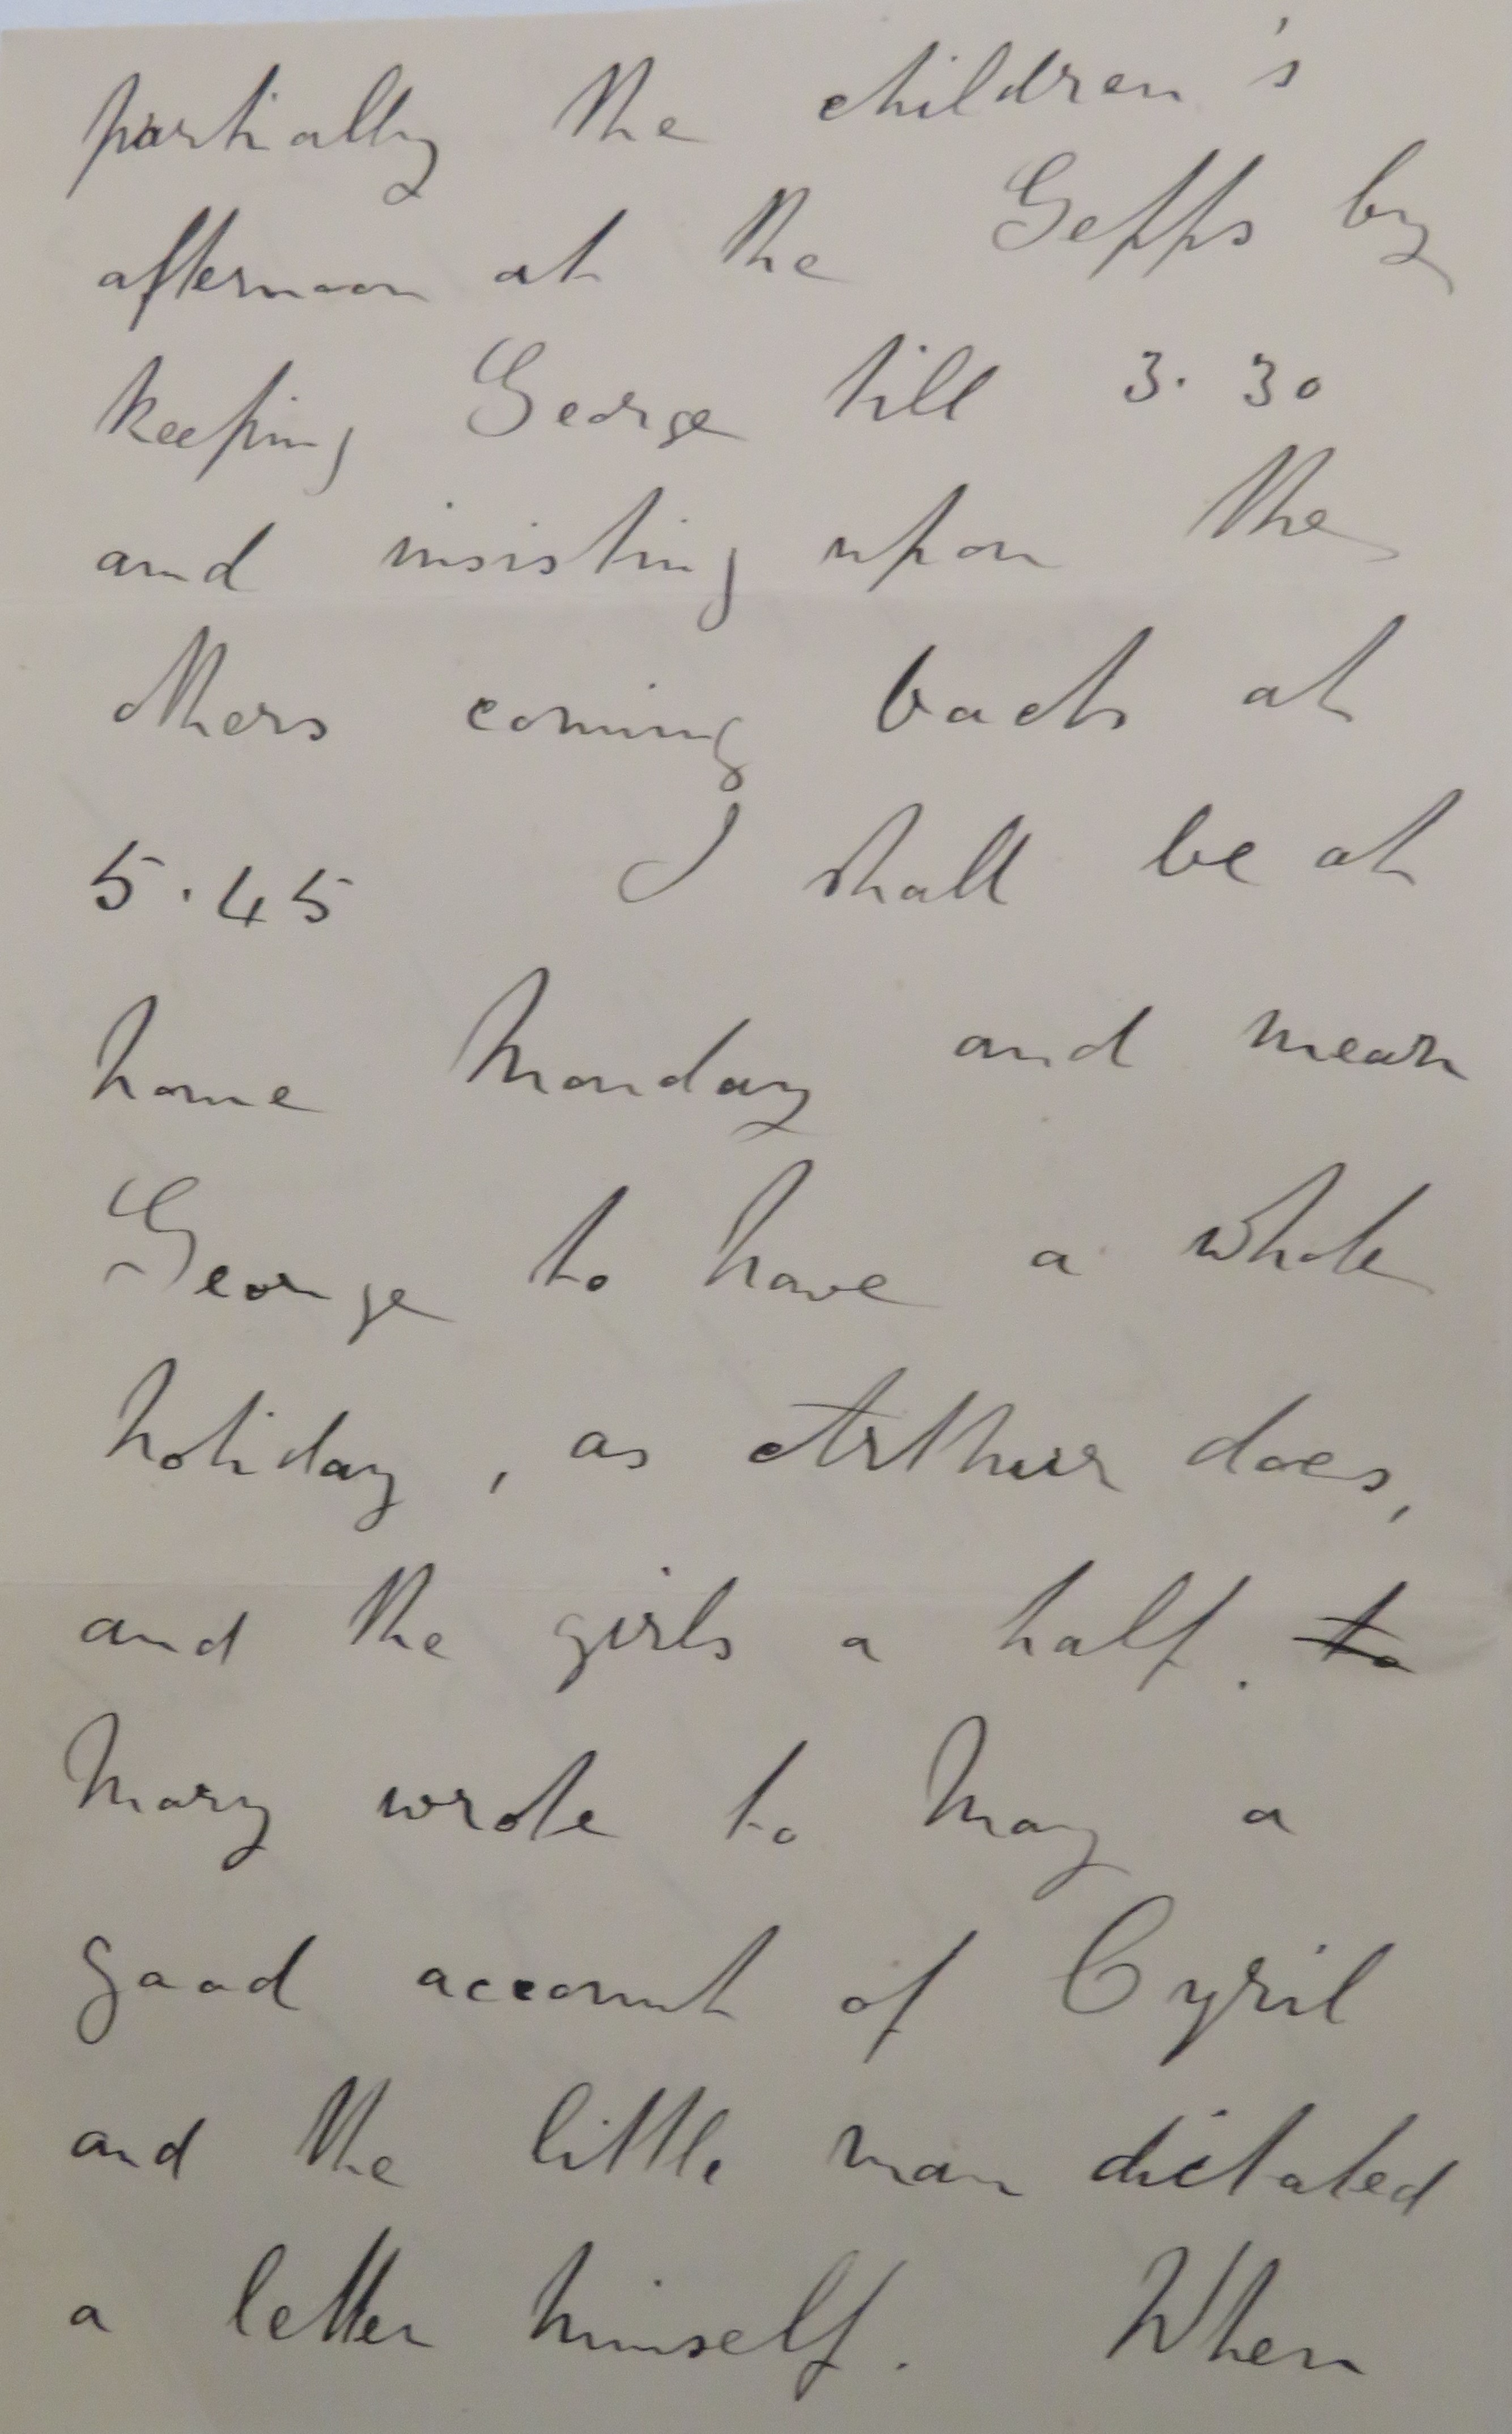 partially the children's
afternoon at the Gepps by
keeping George till 3.30
and insisting upon the
others coming back at
5.45 I shall be at
home Monday and mean
George to have a whole
holiday, as Arthur does,
and the girls a half. to
Mary wrote to May a
good account of Cyril
and the little man dictated
a letter himself. When